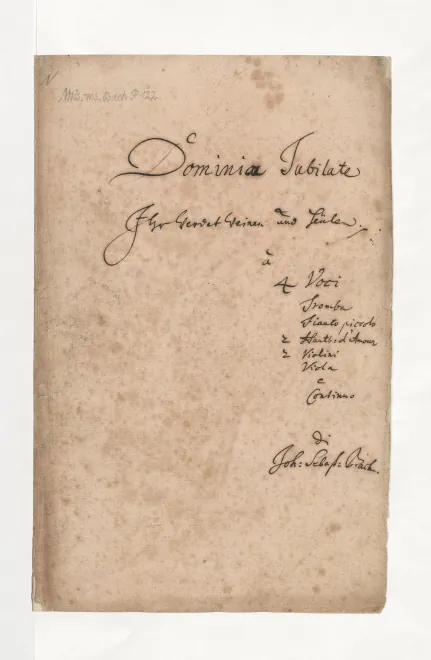 Mus. ms. Bach P 122
Dominica Jubilate
Ihr werdet weinen und heülen.
à
4 Voci
Tromba
Flauto piccolo
2 Hautb: d'Amour
2 Violini
Viola
e
Continuo
di
Joh: Sebast: Bach.